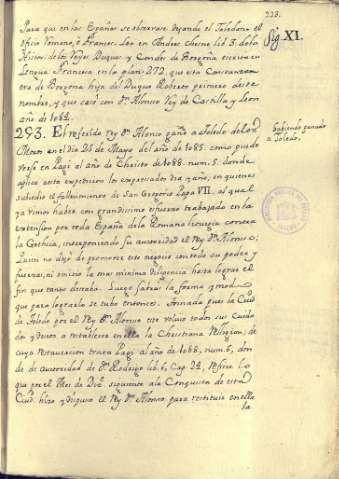 223.
Sig XI.
Para que en las Españas se observare dejando el Toledano el
oficio Romano, ó Frances. Leo en Andres Chesne lib 3. de la
Histor. de los Reyes Duques y Condes de Borgoña escrita en
Lengua Francesa en la plan 272, que esta Constanza
era de Borgoña hija del Duque Roberto primero de este
nombre, y que casò con Dn. Alonso Rey de Castilla y Leon
año de 1084.
293. El referido Rey Dn. Alonso ganò a Toledo de los
Moros en el dia 25 de Mayo del año de 1085. como puede
verse en Pagi al año de Christo de 1088. num. 5. donde
aplica esta expedicion
habiendo ganado
a Toledo.
subcedio el fallecimiento de San Gregorio Papa VII. al qual
ya vimos haber con grandissimo esfuerzo trabajado en la
extension por toda España de la Romana liturgia contra
la Gothica, interponiendo su autoridad el Rey Dn. Alonso;
quien no dejó de promover este negocio con todo su poder y
fuerzas, ni omitio la mas minima diligencia hasta lograr el
fin que tanto deseaba. Luego sabras la forma y modo
que para lograrlo se tubo entonces. Ganada pues la Ciud.
de Toledo por el Rey Dn. Alonso este volvio todos sus cuida
dos y deseos a restablecer en ella la Christiana Religion; de
cuya restauracion trata Pagi al año de 1088. num. 6, don
de de autoridad de Dn. Rodrigo lib. 6, Cap. 24, refiere lo
que por el Mes de Diz.e siguiente a la Conquista de esta
Ciud. hizo y dispuso el Rey Dn. Alonso para restituir en ella
la